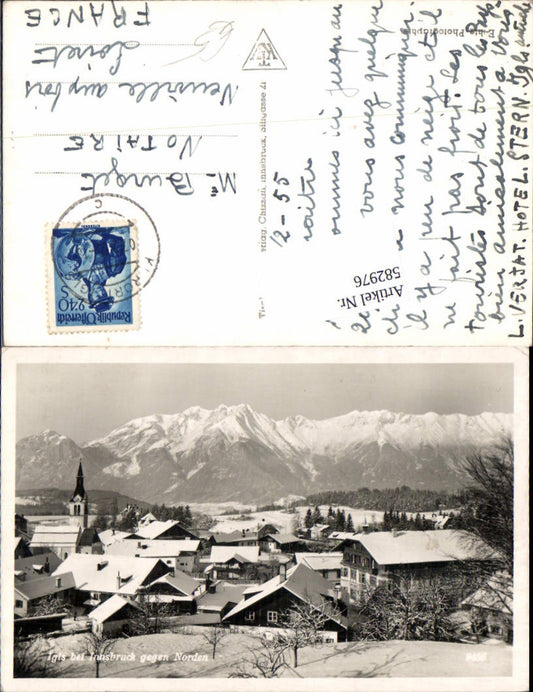 12-55
Maître
sommes ici jusqu'au
vous avez quelque
à nous communiquer.
il y a peu de neige et il
ne fait pas froid. Les
touristes sont de tous les pays
bien amicalement à vous
L. VERSAT. HOTEL. STERN. Igls autriche
Me Burget
NOTAIRE
Neuville aux bois
Loiret
FRANCE
Echte Photographie
Chizzali, Innsbruck,
Artikel Nr.
582976
Republik Österreich
2·40 S
Igls bei Innsbruck gegen Norden